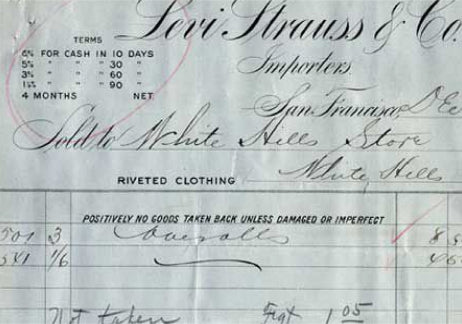 Levi Strauss & Co.
TERMS
6% FOR CASH IN 10 DAYS
5% " " " 30 "
3% " " " 60 "
1½% " " " 90 "
4 MONTHS NET
Importers
San Francisco, Dec
Sold to White Hills Store
RIVETED CLOTHING White Hills
POSITIVELY NO GOODS TAKEN BACK UNLESS DAMAGED OR IMPERFECT
501 3 Overalls 8
Not taken Frgt 1 05